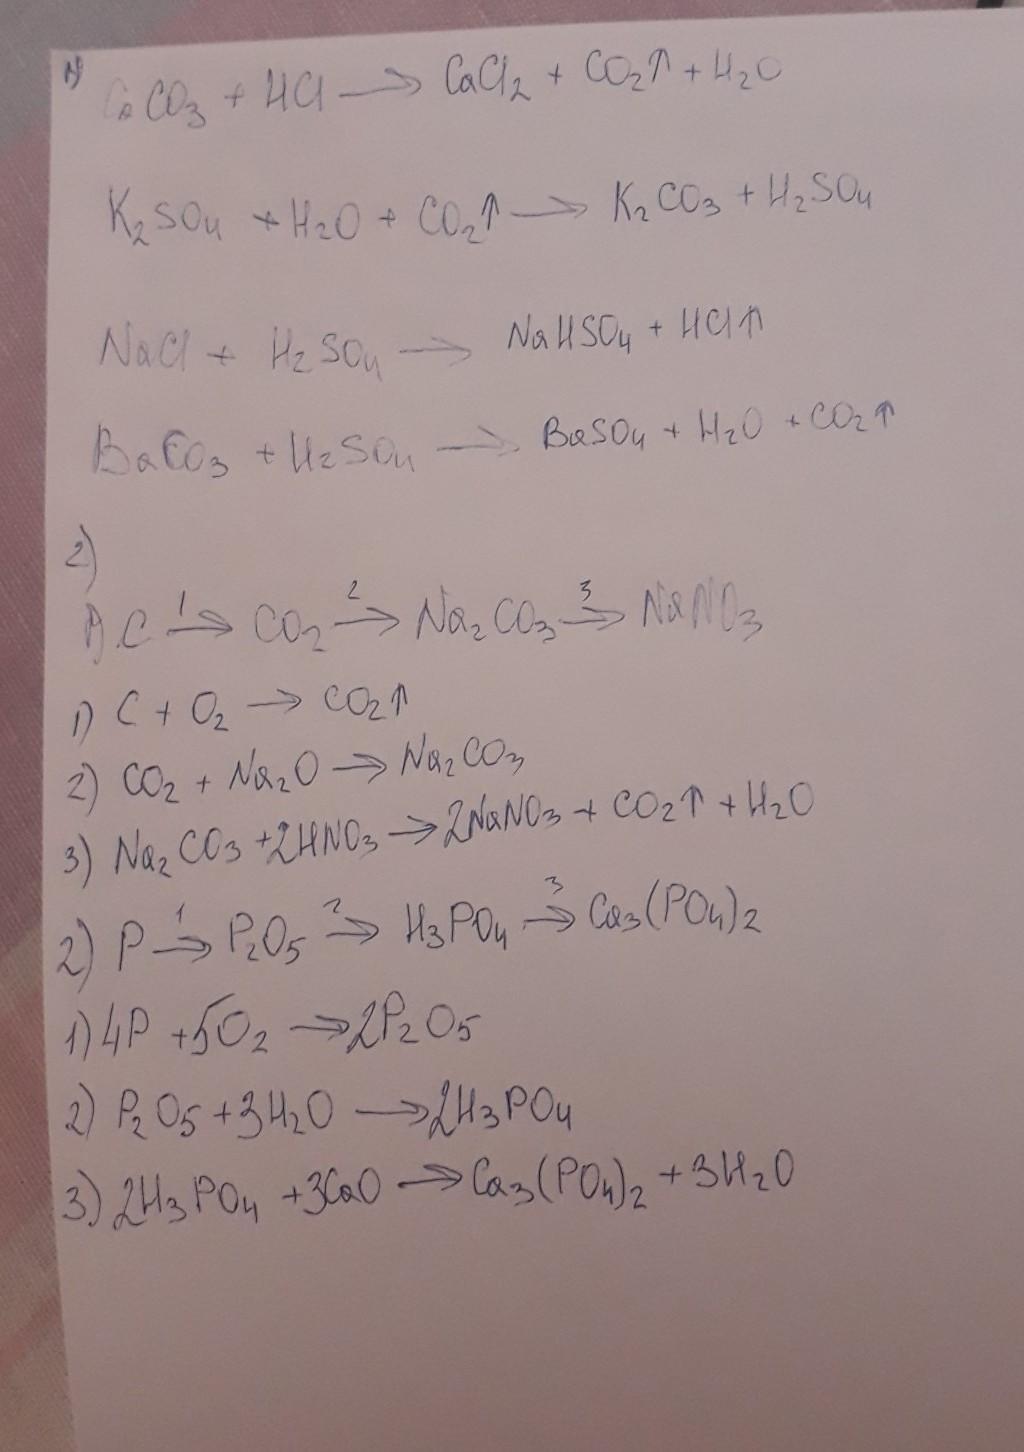 1)
CaCO₃ + HCl ⟶ CaCl₂ + CO₂↑ + H₂O
K₂SO₄ + H₂O + CO₂↑ ⟶ K₂CO₃ + H₂SO₄
NaCl + H₂SO₄ ⟶ NaHSO₄ + HCl↑
BaCO₃ + H₂SO₄ ⟶ BaSO₄ + H₂O + CO₂↑
2)
1) C ⟶¹ CO₂ ⟶² Na₂CO₃ ⟶³ NaNO₃
1) C + O₂ ⟶ CO₂↑
2) CO₂ + Na₂O ⟶ Na₂CO₃
3) Na₂CO₃ + 2HNO₃ ⟶ 2NaNO₃ + CO₂↑ + H₂O
2) P ⟶¹ P₂O₅ ⟶² H₃PO₄ ⟶³ Ca₃(PO₄)₂
1) 4P + 5O₂ ⟶ 2P₂O₅
2) P₂O₅ + 3H₂O ⟶ 2H₃PO₄
3) 2H₃PO₄ + 3CaO ⟶ Ca₃(PO₄)₂ + 3H₂O